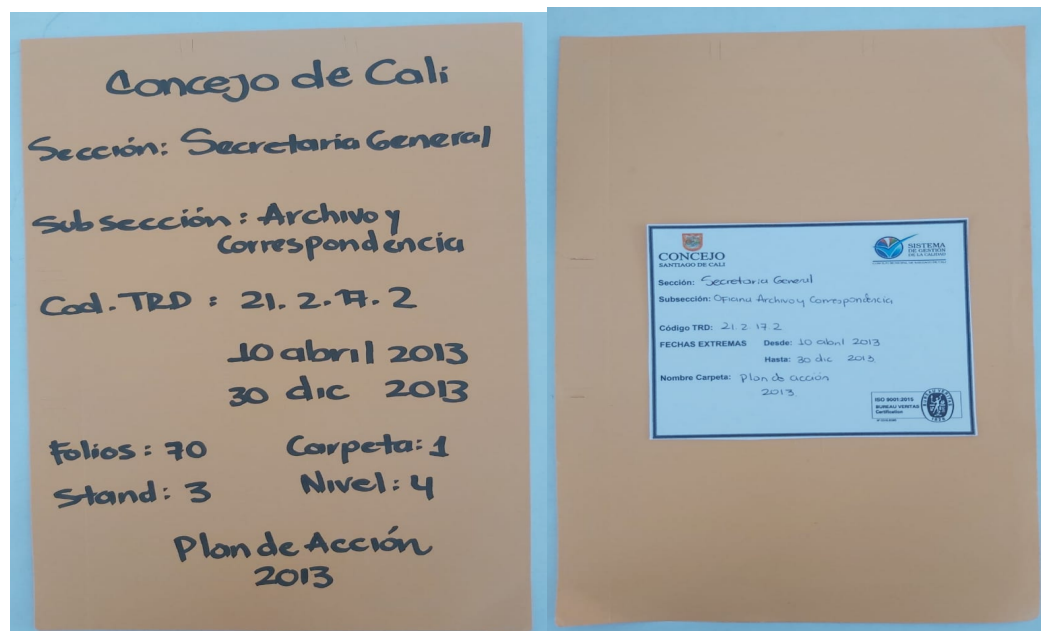 Concejo de Cali
Sección: Secretaria General
Subsección: Archivo y
Correspondencia
Cod. TRD: 21. 2. 17. 2
10 abril 2013
30 dic 2013
Folios: 70 Carpeta: 1
Stand: 3 Nivel: 4
Plan de Acción
2013
CONCEJO
SANTIAGO DE CALI
SISTEMA
DE GESTIÓN
DE LA CALIDAD
Sección: Secretaria General
Subsección: Oficina Archivo y Correspondencia
Código TRD: 21. 2 17 2
FECHAS EXTREMAS Desde: 10 abril 2013
Hasta: 30 dic 2013
Nombre Carpeta: Plan de acción
2013
ISO 9001:2015
BUREAU VERITAS
Certification